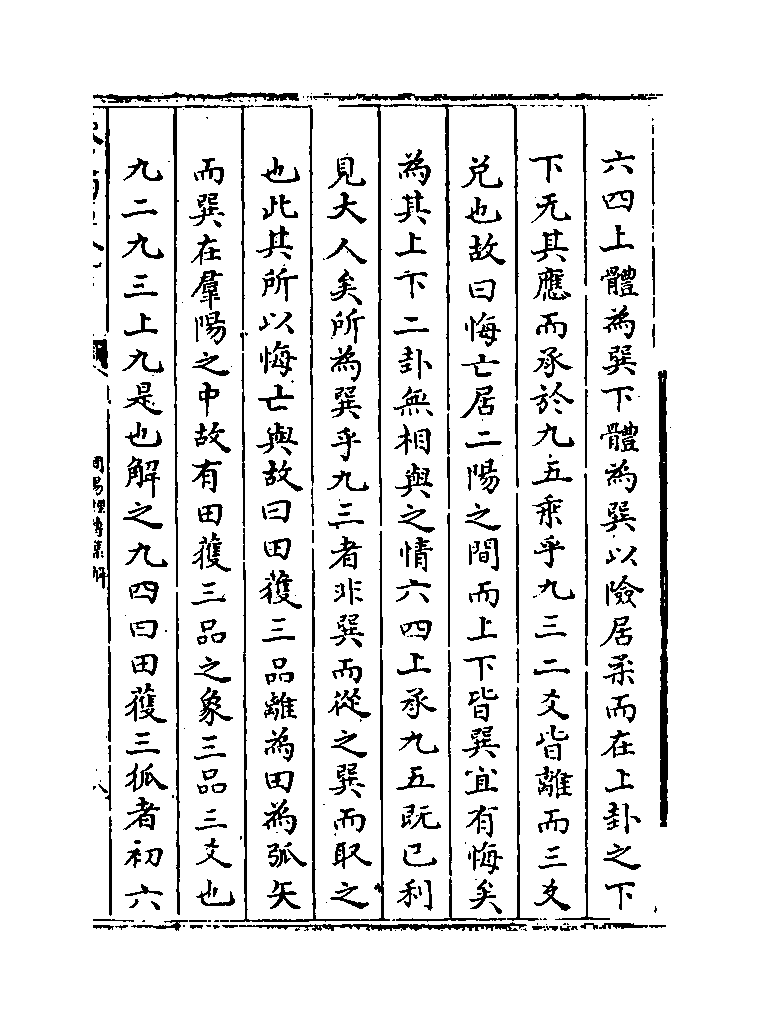 六四上體為巽下體為巽以險居柔而在上卦之下
下无其應而承於九五乘乎九三二爻皆離而三爻
兌也故曰悔亡居二陽之間而上下皆巽宜有悔矣
為其上下二卦無相與之情六四上承九五既已利
見大人矣所為巽乎九三者非巽而從之巽而取之
也此其所以悔亡與故曰田獲三品離為田為弧矢
而巽在羣陽之中故有田獲三品之象三品三爻也
九二九三上九是也解之九四曰田獲三狐者初六